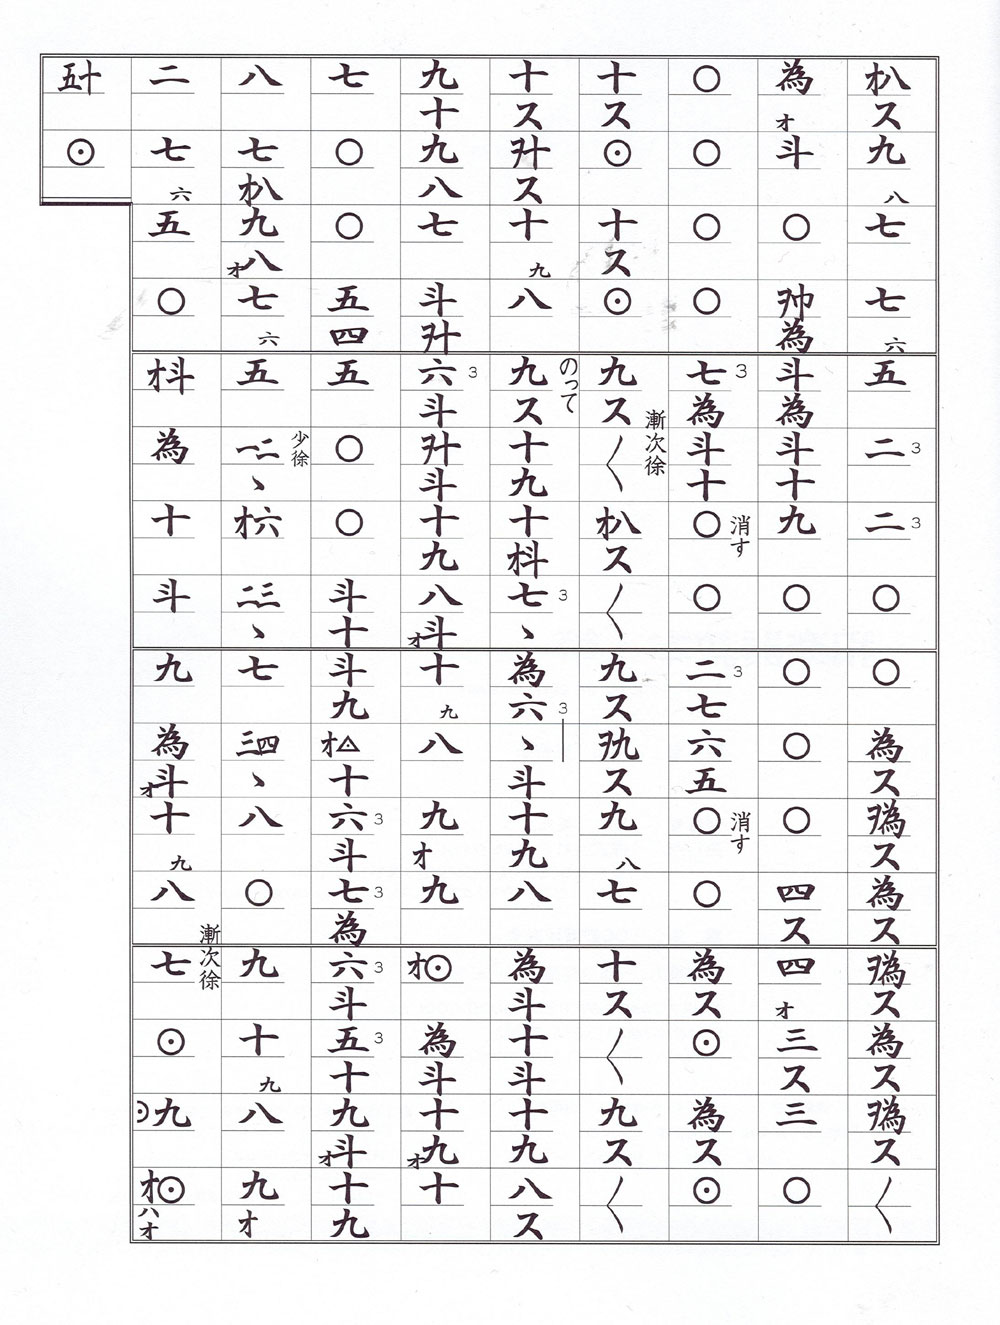 オ八 ス 九 八 七 七 六 五 二 3 二 3 ○ ○ 為 ス ヲ為 ス 為 ス ヲ為 ス 為 ス ヲ為 ス 〱
為 オ 斗 ○ ヲ巾 為 斗 為 斗 十 九 ○ ○ ○ ○ 四 ス 四 オ 三 ス 三 ○
○ ○ ○ ○ 七 3 為 斗 十 ○ 消す ○ 二 3 七 六 五 ○ 消す ○ 為 ス ⊙ 為 ス ⊙
漸次徐
十 ス ⊙ 十 ス ⊙ 九 ス 〱 オ八 ス 〱 九 ス ヲ九 ス 九 八 七 十 ス 〱 九 ス 〱
のって
十 ス ヲ十 ス 十 九 八 九 ス 十 九 十 オ斗 七 3 ヽ 為 六 3 ヽ 斗 十 九 八 為 斗 十 斗 十 九 八 ス
九 十 九 八 七 斗 ヲ十 六 3 斗 ヲ十 斗 十 九 八 オ斗 十 九 八 九 オ 九 オ⊙ 為 斗 十 オ九 十
七 ○ ○ 五 四 五 ○ ○ 斗 十 斗 九 オ◬ 十 六 3 斗 七 3 為 六 3 斗 五 3 十 九 オ斗 十 九
少徐
八 七 オ八 九 オ八 七 六 五 一二 ヽ オ六 二三 ヽ 七 三四 ヽ 八 ○ 九 十 九 八 九 オ
漸次徐
二 七 六 五 ○ オ斗 為 十 斗 九 為 オ斗 十 九 八 七 ⊙ 九 オ⊙ ハオ
五十 ⊙